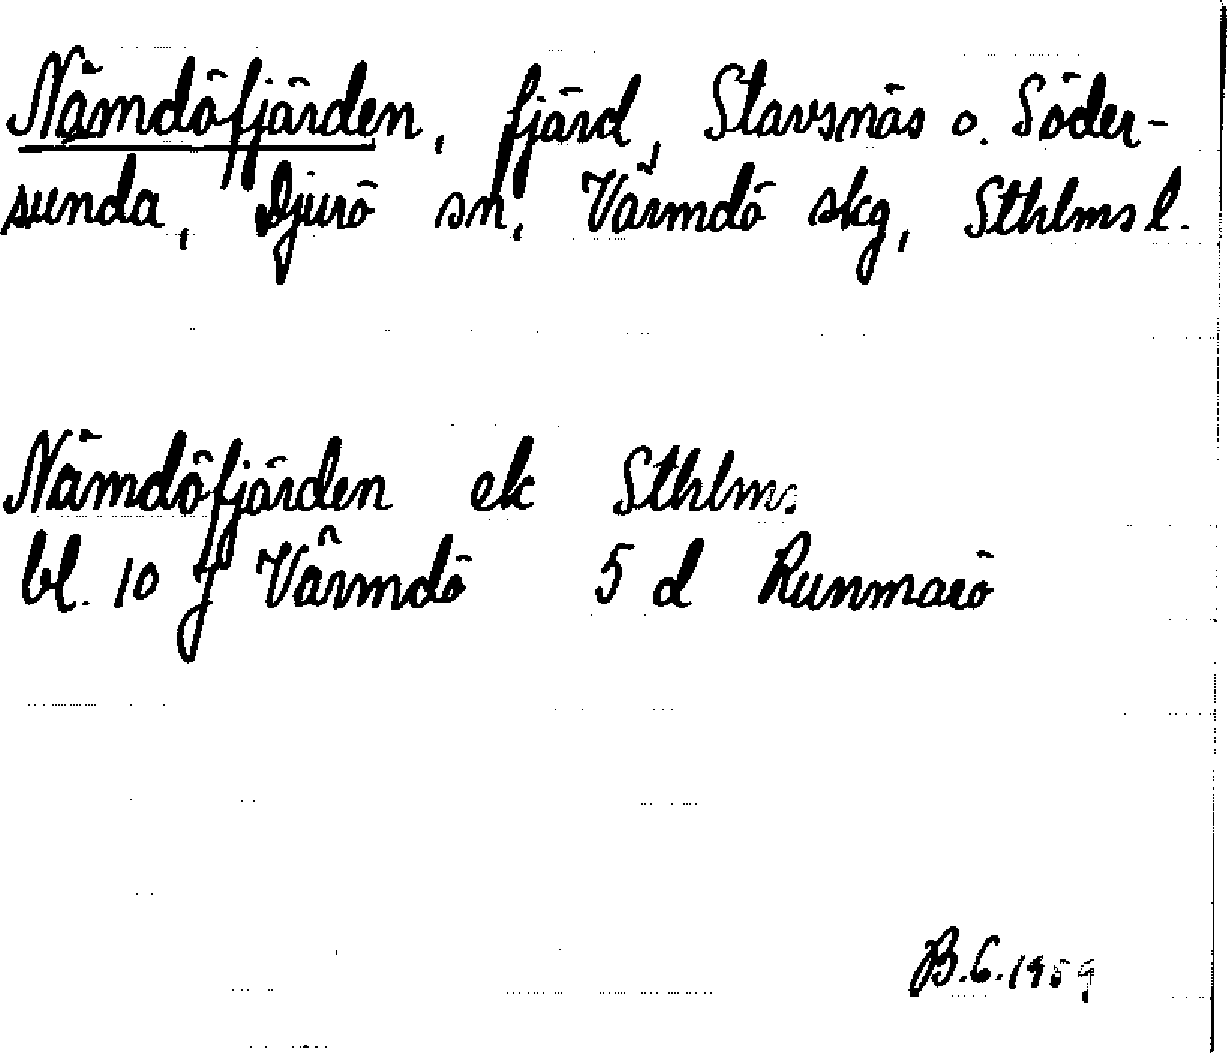 Nämdöfjärden, fjärd, Stavsnäs o. Söder-
sunda, Djurö sn, Värmdö skg, Sthlms l.
Nämdöfjärden ek Sthlms
bl. 10 J Värmdö 5 d Runmarö
B.G. 1959